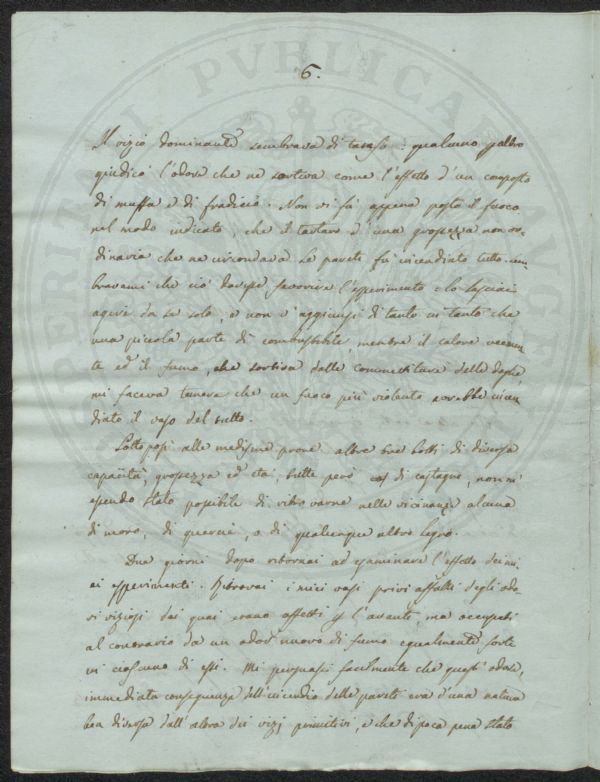 6.
Il vizio dominante sembrava di tarafo: qualcuno altro
giudicò l'odore che ne sortiva come l'effetto d'un composto
di muffa e di fradicio. Non vi fù appena posto il fuoco
nel modo indicato, che il tartaro d'una grossezza non or-
dinaria che ne circondava le pareti fù incendiato tutto. sem-
bravami che ciò dovesse favorire l'esperimento e lo lasciai
agire da se solo, e non v'aggiunsi di tanto in tanto che
una piccola parte di combustibile mentre il calore veemen-
te ed il fumo, che sortiva dalle commettiture delle doghe
mi faceva temere che un fuoco più violento avrebbe incen-
diato il vaso del tutto.
Sottoposi alle medesime prove altre due botti di diversa
capacità, grossezza ed età, tutte però di castagno, non m'
essendo stato possibile di ritrovarne nelle vicinanze alcuna
di moro, di quercia, o di qualunque altro legno.
Due giorni dopo ritornai ad esaminare l'effetto dei mi-
ei esperimenti. Ritrovai i miei vasi privi affatto degli odo-
ri viziosi dai quai erano affetti l'avanti, ma occupati
al contrario da un odor nuovo di fumo egualmente forte
in ciascuno di essi. Mi persuasi facilmente che quest'odore,
immediata conseguenza dell'incendio delle pareti era d'una natura
ben diversa dall'altra dei vizj primitivi, e che di poca pena stato
PVBLICAE